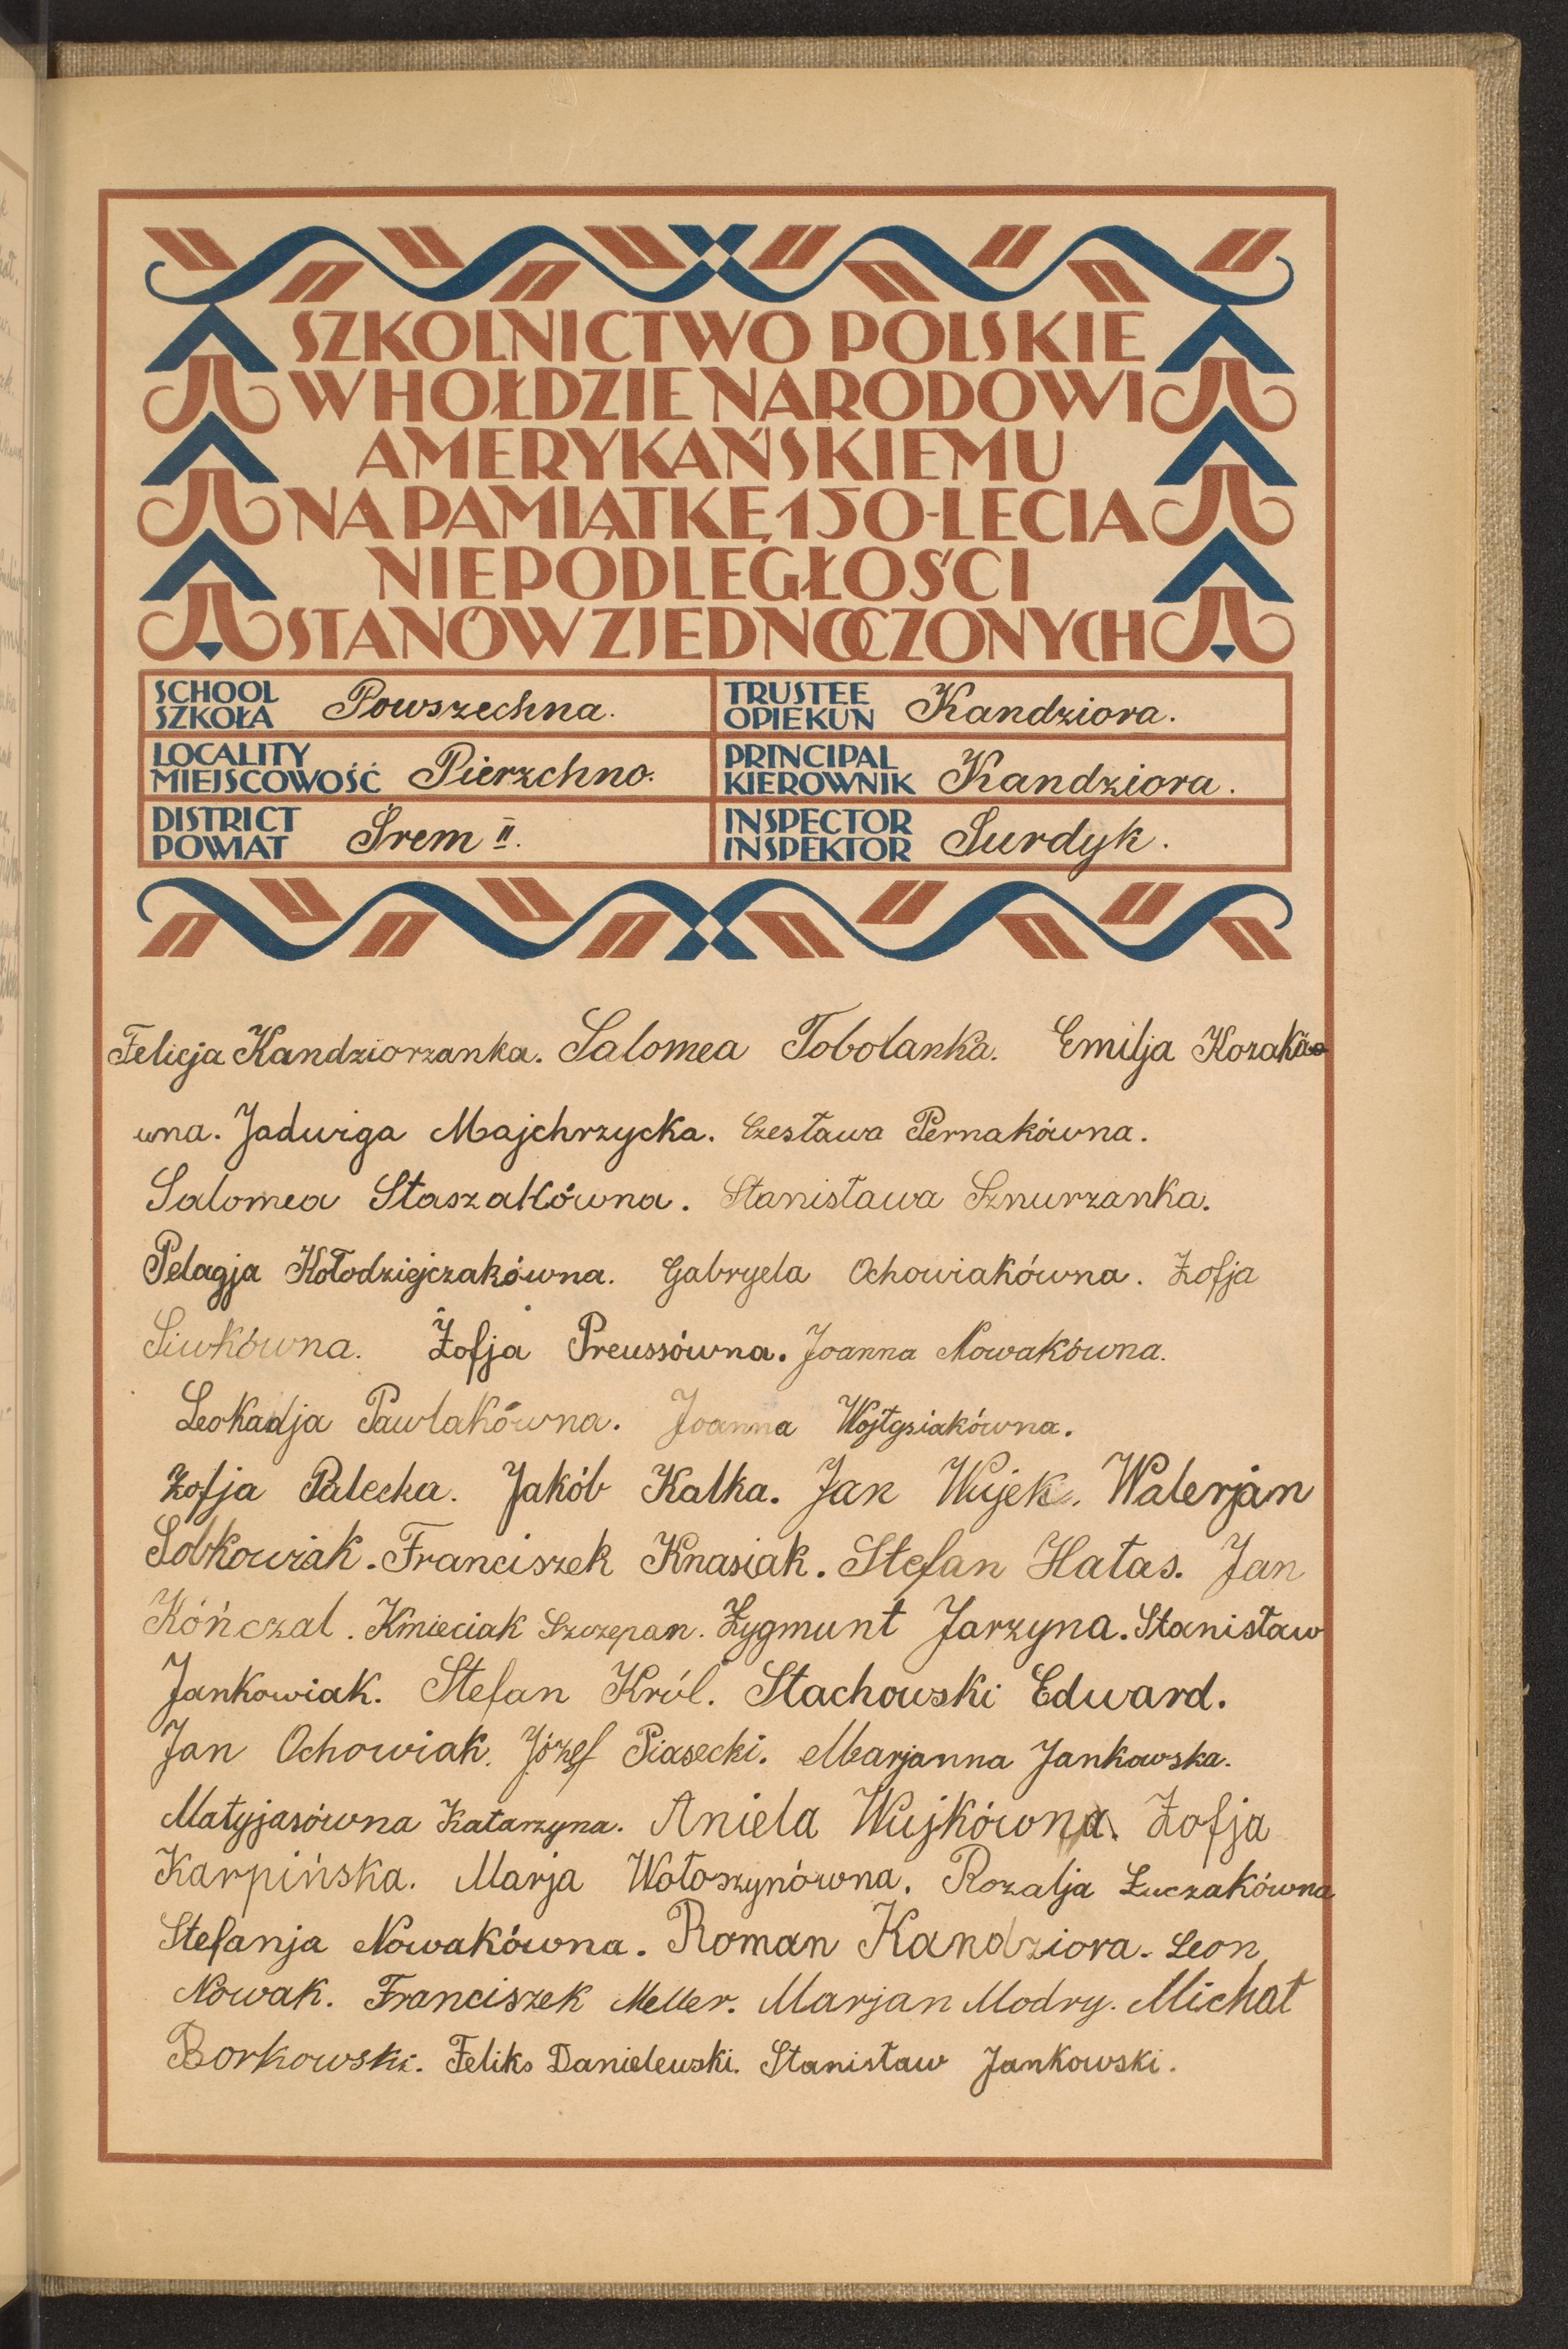 SZKOLNICTWO POLSKIE
W HOŁDZIE NARODOWI
AMERYKAŃSKIEMU
NA PAMIĄTKĘ 150-LECIA
NIEPODLEGŁOŚCI
STANÓW ZJEDNOCZONYCH
SCHOOL SZKOŁA Powszechna. TRUSTEE OPIEKUN Kandziora.
LOCALITY MIEJSCOWOŚĆ Pierzchno. PRINCIPAL KIEROWNIK Kandziora.
DISTRICT POWIAT Śrem II. INSPECTOR INSPEKTOR Surdyk.
Felicja Kandziorzanka. Salomea Tobolanka. Emilja Kozakó
wna. Jadwiga Majchrzycka. Czesława Pernakówna.
Salomea Staszakówna. Stanisława Sznurzanka.
Pelagja Kołodziejczakówna. Gabryela Ochowiakówna. Zofja
Siwkówna. Zofja Preussówna. Joanna Nowakówna.
Leokadja Pawlakówna. Joanna Wojtysiakówna.
Zofja Palecha. Jakób Kalka. Jan Wujek. Walerjan
Sobkowiak. Franciszek Knasiak. Stefan Hałas. Jan
Kończal. Kmieciak Szczepan. Zygmunt Jarzyna. Stanisław
Jankowiak. Stefan Król. Stachowski Edward.
Jan Ochowiak. Józef Piasecki. Marjanna Jankowska.
Matyjasówna Katarzyna. Aniela Wujkówna. Zofja
Karpińska. Marja Wołoszynówna. Rozalja Łuczakówna
Stefanja Nowakówna. Roman Kandziora. Leon
Nowak. Franciszek Meller. Marjan Modry. Michał
Borkowski. Feliks Danielewski. Stanisław Jankowski.